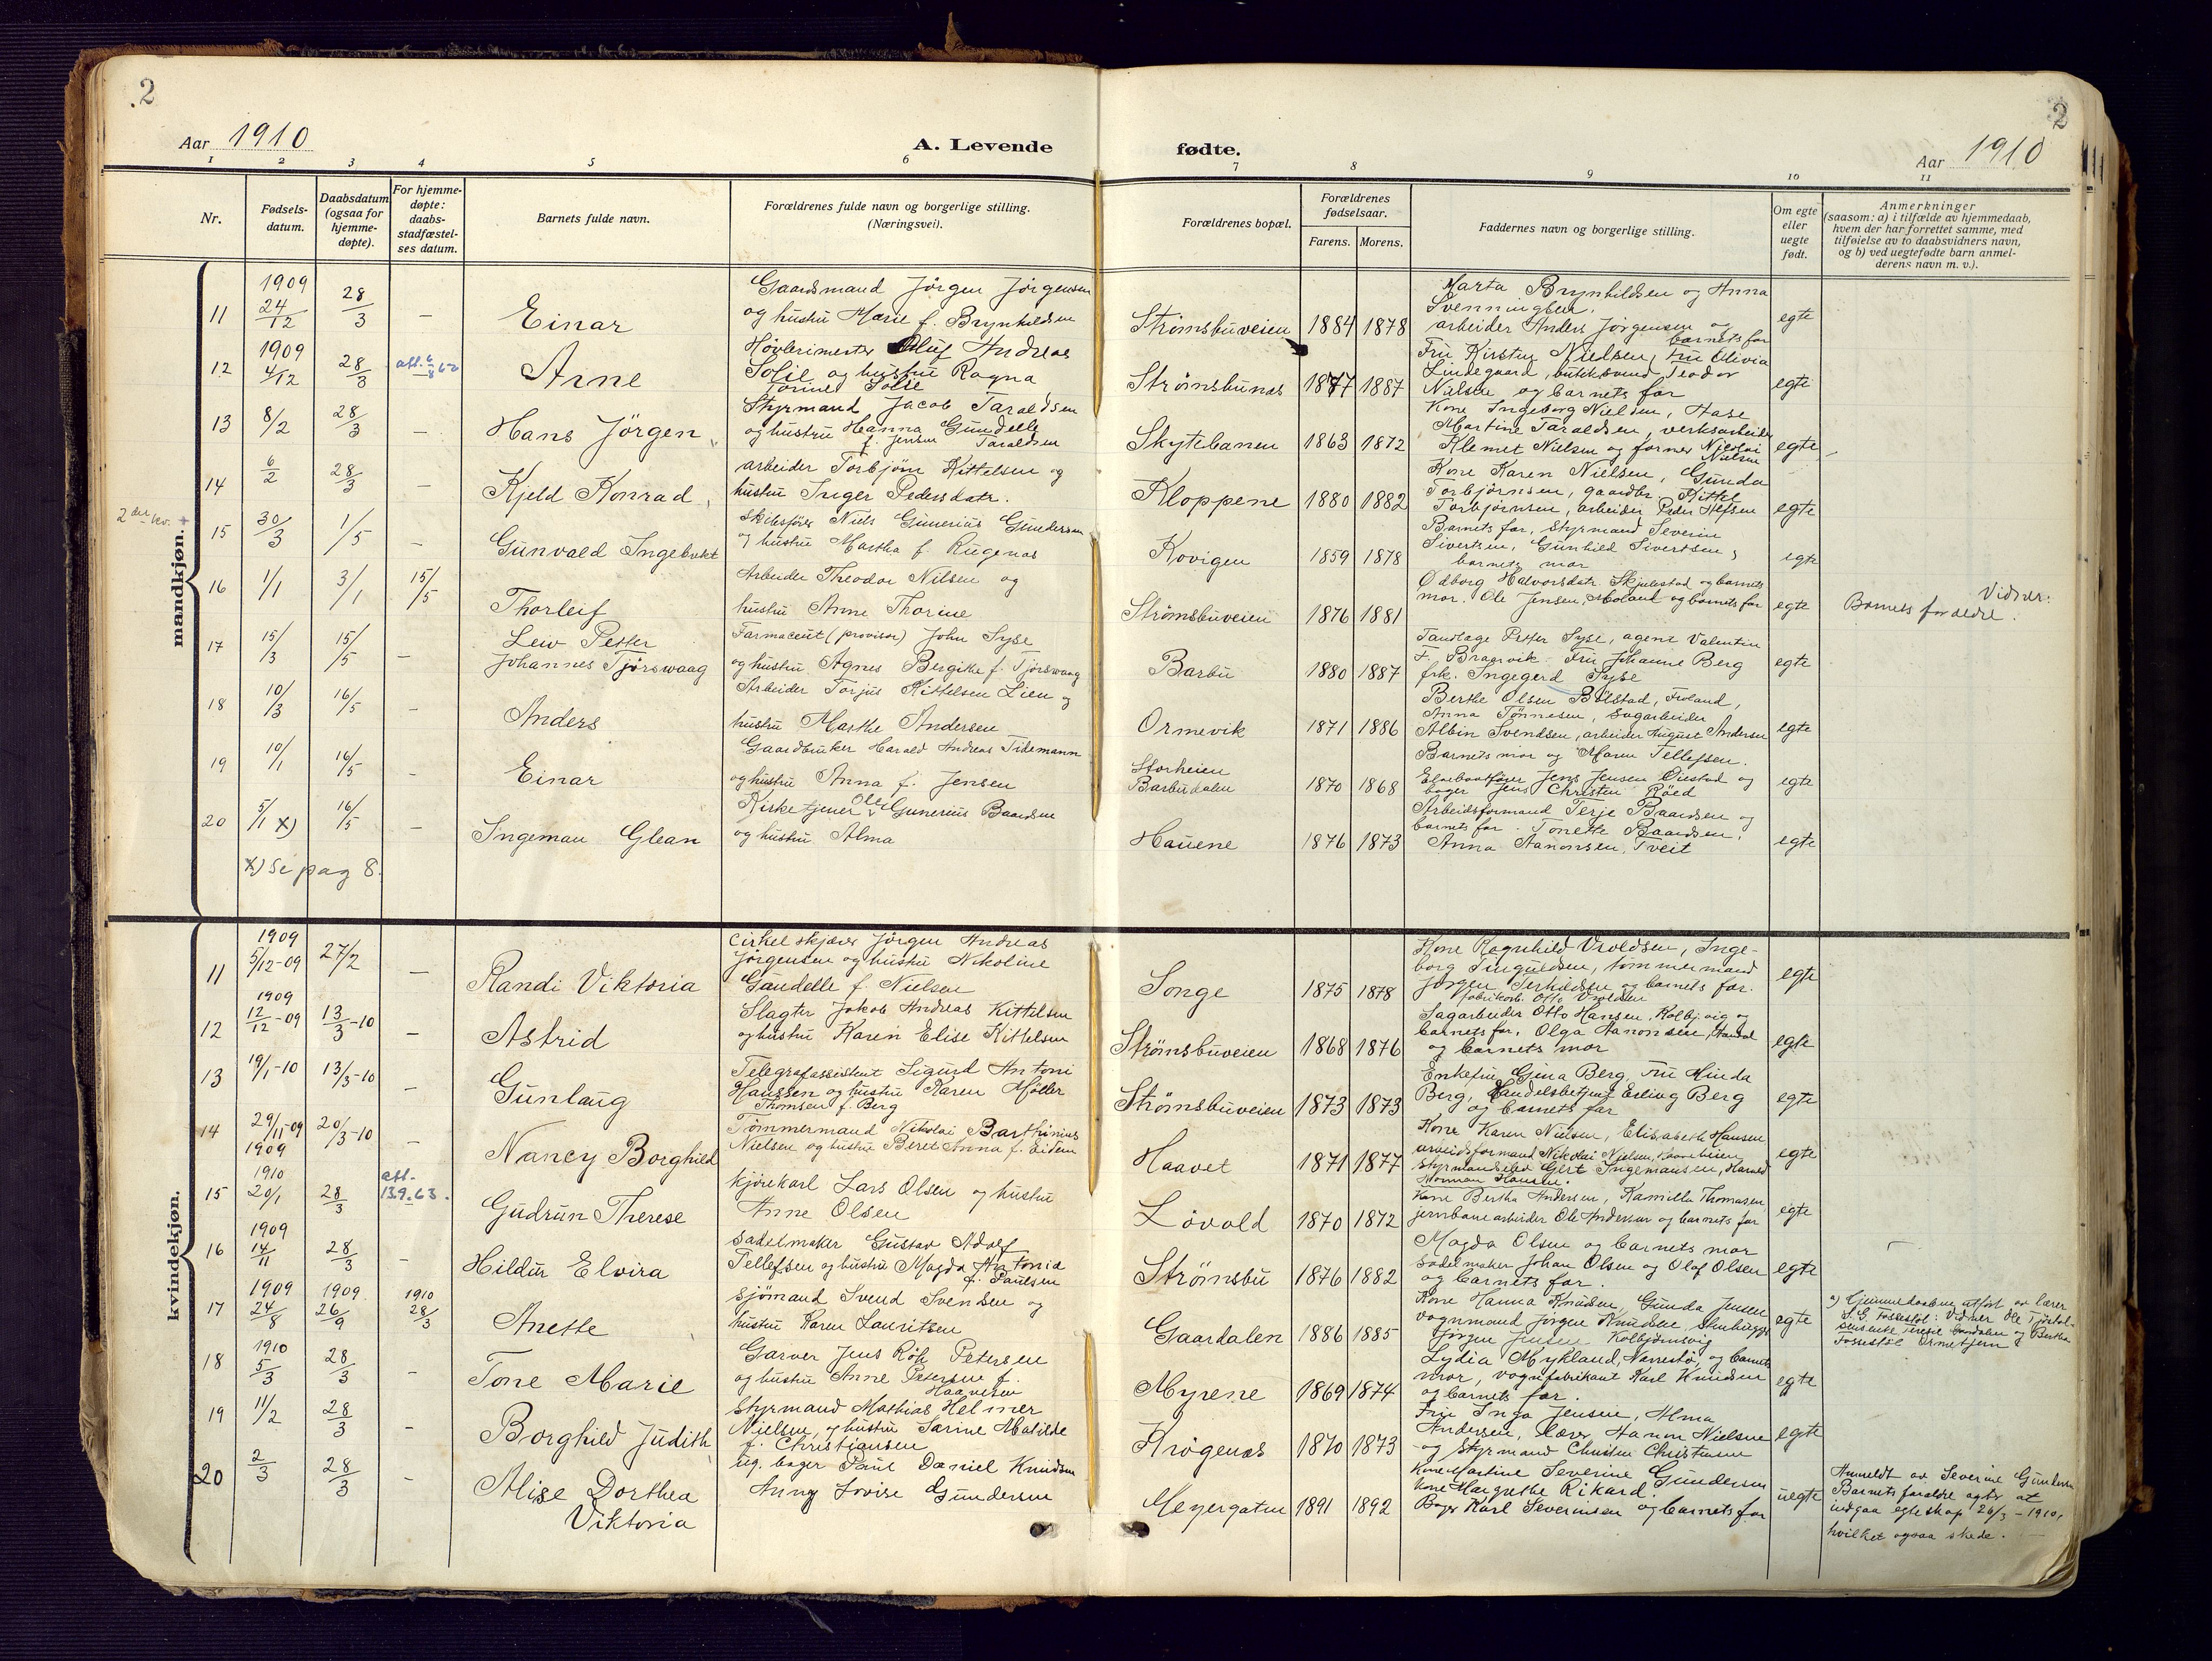 2
Aar 1910
A. Levende
1 2 3 4 5 6
Nr.
Fødsels-
datum.
Daabsdatum
(ogsaa for
hjemme-
døpte).
For hjemme-
døpte:
daabs-
stadfæstel-
ses datum.
Barnets fulde navn.
Forældrenes fulde navn og borgerlige stilling.
(Næringsvei).
mandkjøn.
11 1909 24/12 28/3 – Einar
Gaardsmand Jørgen Jørgensen
og hustru Marie f. Brynhildsen
12 1909 4/12 28/3 Arne
Høvlerimester Oluf Andreas
Solie og hustru Ragna
Torine Solie
13 8/2 28/3 – Hans Jörgen
Styrmand Jacob Taraldsen
og hustru Hanna Gundelle
f. Jensen Taraldsen
14 6/2 28/3 – Kjeld Konrad
arbeider Torbjørn Kittelsen og
hustru Inger Pedersdatr.
15 30/3 1/5 – Gunvald Ingebrekt
Skibsfører Niels Gunerius Gundersen
og hustru Martha f. Rugenæs
16 1/1 3/1 15/5 Thorleif
Arbeider Theodor Nilsen og
hustru Anne Thorine
17 15/3 15/5 – Lew Petter
Johannes Tjørswaag
Farmaceut (provisor) John Syse
og hustru Agnes Bergitte f. Tjørswaag
18 10/3 16/5 – Anders
Arbeider Torjus Kittelsen Lien og
hustru Marthe Andersen
19 10/1 16/5 – Einar
Gaardbruker Harald Andreas Tidemann
og hustru Anna f. Jensen
20 5/1 x) 16/5 – Ingeman Glean
Kirketjener Ole Gunerius Baardsen
og hustru Alma
x) Se pag 8.
kvindekjøn.
11 1909 5/12-09 27/2 – Randi Viktoria
Cirkelskjærer Jørgen Andreas
Jørgensen og hustru Nikoline
Gundelle f. Nielsen
12 1909 12/12-09 13/3-10 – Astrid
Slagter Jakob Andreas Kittelsen
og hustru Karen Elise Kittelsen
13 19/1-10 13/3-10 – Gunlaug
Telegrafassistent Sigurd Antoni
Hanssen og hustru Karen Møller
Thomsen f. Berg
14 29/11-09 1909 20/3-10 – Nancy Borghild
Tømmermand Nikolai Barthinius
Nielsen og hustru Beret Anna f. Eidem
15 1910 20/1 28/3 att. 13.9.63. Gudrun Therese
kjørekarl Lars Olsen og hustru
Anne Olsen
16 1909 14/11 28/3 – Hildur Elvira
Sadelmaker Gustav Adolf
Tellefsen og hustru Magda Antonia
f. Paulsen
17 1909 24/8 1909 26/9 1910 28/3 Anette
Sjømand Svend Svendsen og
hustru Karen Lauritsen
18 1910 5/3 28/3 – Tone Marie
Garver Jens Röh Petersen
og hustru Anne Petersen f.
Haavesen
19 11/2 28/3 – Borghild Judith
Styrmand Mathias Helmer
Nielsen, og hustru Sarine Matilde
f. Christiansen
20 2/3 28/3 – Alise Dorthea
Viktoria
ug. bager Paul Daniel Knudsen
Anny Lovise Gundersen
2
fødte.
Aar 1910
7 8 9 10 11
Forældrenes bopæl.
Forældrenes
fødselsaar.
Farens. Morens.
Faddernes navn og borgerlige stilling.
Om egte
eller
uegte
født.
Anmerkninger
(saasom: a) i tilfælde av hjemmedaab,
hvem der har forrettet samme, med
tilføielse av to daabsvidners navn,
og b) ved uegtefødte barn anmel-
derens navn m. v.).
Strømsbuveien 1884 1878
Marta Brynhildsen og Anna
Svenningsen,
arbeider Anders Jørgensen og
barnets far
egte
Strømsbunæs 1877 1887
Fru Kirsten Nielsen, Fru Olivia
Lindegaard, butiksvend Teodor
Nielsen og barnets far
egte
Skytebanen 1863 1872
Kone Ingeborg Nielsen, Hase
Martine Taraldsen, verksarbeider
Klemet Nielsen og former Nicolai
Nielsen
egte
Kloppene 1880 1882
Kone Karen Nielsen, Gunda
Torbjørnsen, gaardbr. Kittel
Torbjørnsen, arbeider Peder Olefsen
egte
Kovigen 1859 1878
Barnets far, Styrmand Severin
Sivertsen, Gunhild Sivertsen,
barnets mor
egte
Strømsbuveien 1876 1881
Odborg Halvorsdatr. Skjulestad og barnets
mor. Ole Jensen, Moland og barnets far
egte
Vidner:
Barnets forældre.
Barbu 1880 1887
Tandlæge Petter Syse, agent Valentin
F. Braarvik. Fru Johanne Berg
frk. Ingegerd Syse
egte
Ormevik 1871 1886
Berthe Olsen Bölstad, Froland,
Anna Tönnesen, Sagarbeider
Albin Svendsen, arbeider August Andersen
egte
Storheien
Barbudalen 1870 1868
Barnets mor og Maren Tellefsen.
Elvebaatfører Jens Jensen Øiestad og
bager Jens Christen Røed
egte
Hauene 1876 1873
Arbeidsformand Terje Baardsen og
barnets far. Tonette Baardsen,
Anna Aanonsen, Tveit
egte
Songe 1875 1878
Kone Ragnhild Vroldsen, Inge-
borg Tinguldsen, tømmermand
Jørgen Terkildsen og barnets far.
fabrikarb. Otto Vroldsen
egte
Strømsbuveien 1868 1876
Sagarbeider Otto Hansen, Kolbj.vig og
barnets far, Olga Aanonsen,
og barnets mor
egte
Strømsbuveien 1873 1873
Enkefru Gina Berg, Fru Minda
Berg, Handelsbetjent Erling Berg
og barnets far
egte
Haavet 1871 1877
Kone Karen Nielsen, Elisabeth Hansen,
arbeidsformand Nikolai Nielsen,
Styrmandselev Gert Ingemansen, Harald
Norman Hansen.
egte
Løvold 1870 1872
Kone Bertha Andersen, Kamilla Thomasen,
jernbanearbeider Ole Andersen og barnets far
egte
Strømsbu 1876 1882
Magda Olsen og barnets mor
Sadelmaker Johan Olsen og Olaf Olsen
og barnets far.
egte
Gaardalen 1886 1885
Kone Hanna Knudsen, Gunda Jensen
vognmand Jørgen Knudsen,
Jørgen Jensen Kolbjørnsvig
egte
a) Hjemmedaaben utført av lærer
S. G. Fossestøl: Vidner Ole
Fossestøl Ormetjern
Myrene 1869 1874
Lydia Mykland, Narrestø, og barnets
mor, vognfabrikant Karl Knudsen
og barnets far.
egte
Krøgenæs 1870 1873
Frk. Inga Jensen, Alma
Andersen, Lærer, Hanon Nielsen
og Styrmand Christen Christensen
egte
Meyergaten 1891 1892
Kone Martine Severine Gundersen
kone Margrethe Rikard.
Bager Karl Severinsen og barnets far
uegte
Anmeldt av Severine Gundersen
Barnets forældre agter at
indgaa egteskap 26/3 – 1910,
hvilket ogsaa skede.